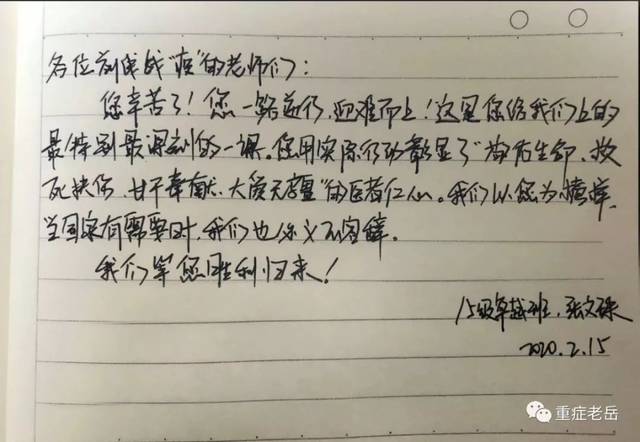 各位前线战“疫”的老师们：
您辛苦了！您一路逆行，迎难而上！这是您给我们上的
最特别最深刻的一课。您用实际行动彰显了“敬佑生命、救
死扶伤、甘于奉献、大爱无疆”的医者仁心。我们以您为榜样，
当国家有需要时，我们也你义不容辞。
我们等您胜利归来！
15级卓越班，张文
2020.2.15
重症老岳